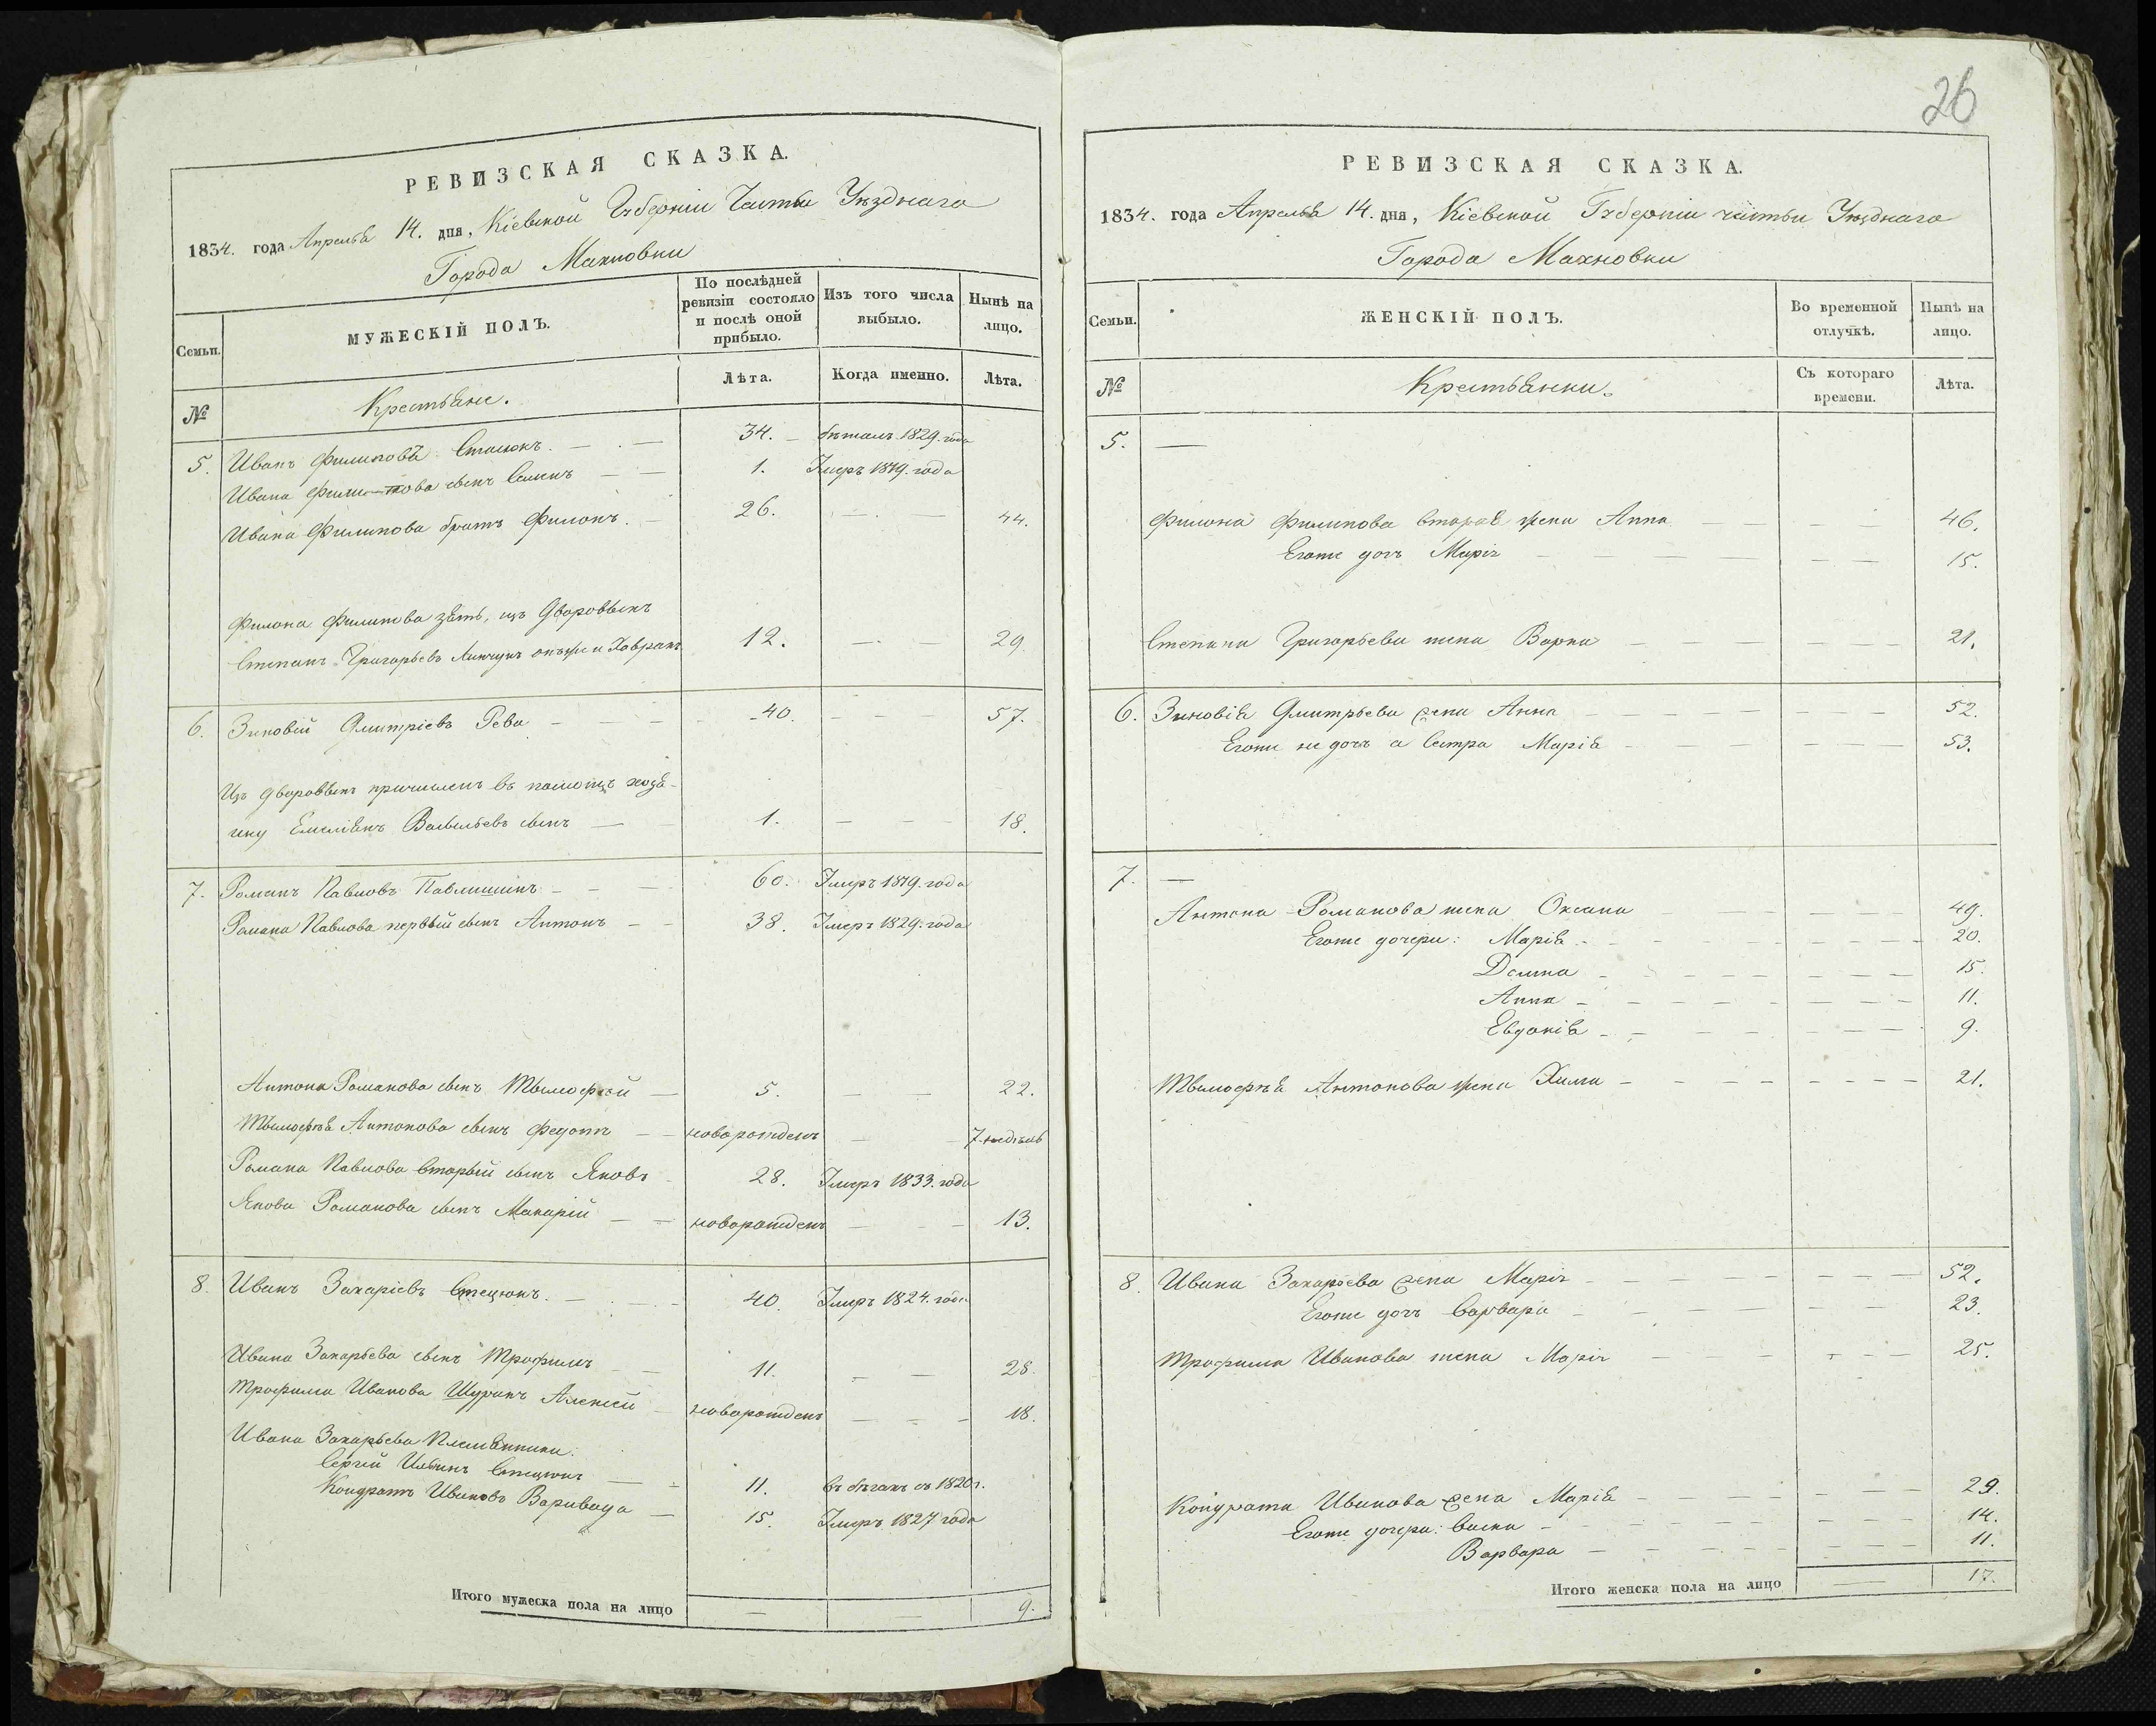 РЕВИЗСКАЯ СКАЗКА.
1834. года Апреля 14. дня, Кіевской Губерніи Части Уѣзднаго
Города Махновки
Семьи.
МУЖЕСКІЙ ПОЛЪ.
По послѣдней ревизіи состояло и послѣ оной прибыло.
Изъ того числа выбыло.
Нынѣ на лицо.
№
Крестьяне.
Лѣта.
Когда именно.
Лѣта.
5. Иванъ Филиповъ Стасюкъ. 34. бѣжалъ 1829. года
Ивана Филипова сынъ Семенъ 1. Умеръ 1819. года
Ивана Филипова братъ Филонъ. 26. 44.
Филона Филипова зять, изъ Дворовыхъ
Степанъ Григорьевъ онъже и Ховракъ 12. 29.
6. Зиновій Дмитріевъ Рева 40. 57.
Изъ дворовыхъ причисленъ въ помощь хозя-
ину Емеліянъ Васильевъ сынъ 1. 18.
7. Романъ Павловъ Павлишинъ 60. Умеръ 1819. года
Романа Павлова первый сынъ Антонъ 38. Умеръ 1829. года
Антона Романова сынъ Тымофѣй 5. 22.
Тымофѣя Антонова сынъ Федотъ новорожденъ 7 недѣль
Романа Павлова вторый сынъ Яковъ 28. Умеръ 1833. года
Якова Романова сынъ Макарій новорожденъ 13.
8. Иванъ Захаріевъ Стецюкъ. 40. Умеръ 1824. года
Ивана Захарьева сынъ Трофимъ 11. 28.
Трофима Иванова Шуринъ Алексей новорожденъ 18.
Ивана Захарьева Племянники:
Сергій Ильинъ Стецюкъ 11. въ бѣгахъ съ 1820 г.
Кондратъ Ивановъ Варивода 15. Умеръ 1827 года
Итого мужеска пола на лицо — — 9.
26
РЕВИЗСКАЯ СКАЗКА.
1834. года Апреля 14. дня, Кіевской Губерніи части Уѣзднаго
Города Махновки
Семьи.
ЖЕНСКІЙ ПОЛЪ.
Во временной отлучкѣ.
Нынѣ на лицо.
№
Крестьянки.
Съ котораго времени.
Лѣта.
5. —
Филона Филипова вторая жена Анна 46.
Егоже дочь Марія 15.
Степана Григорьева жена Варка 21.
6. Зиновія Дмитрьева жена Анна 52.
Егоже не дочь а Сестра Марія 53.
7. —
Антона Романова жена Оксана 49.
Егоже дочери: Марія 20.
Домка 15.
Анна 11.
Евдокія 9.
Тымофѣя Антонова жена Хима 21.
8. Ивана Захарьева жена Марія 52.
Егоже дочь Варвара 23.
Трофима Иванова жена Марія 25.
Кондрата Иванова жена Марія 29.
Егоже дочери: 14.
Варвара 11.
Итого женска пола на лицо — 17.